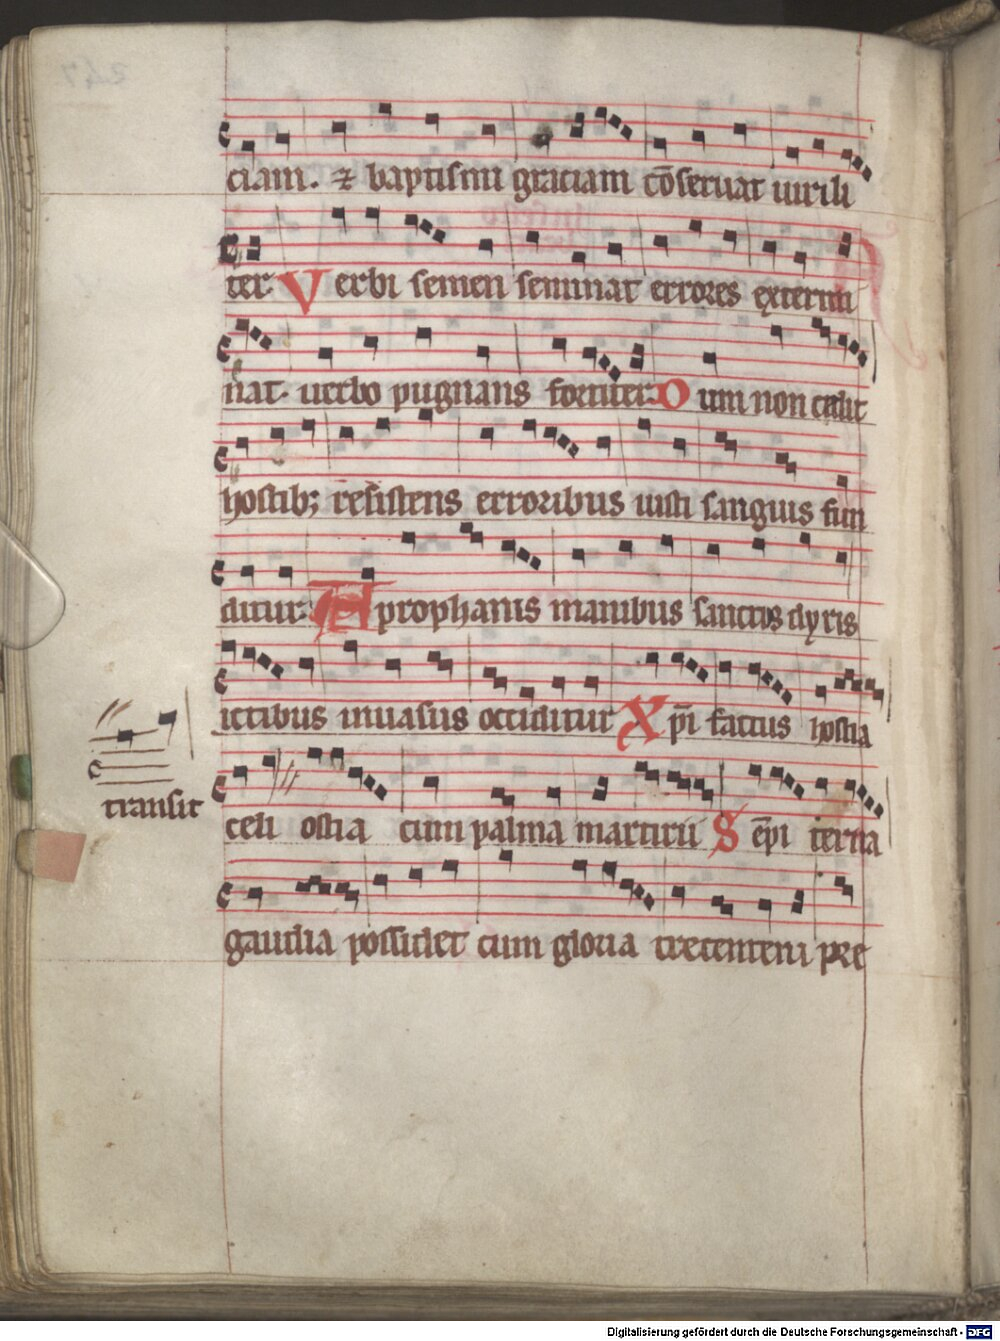 ciam. ⁊ baptismi graciam cōseruat uirili
ter Verbi semen seminat errores extermi
nat. uerbo pugnans fortiter. Dum non cedit
hostib; resistens erroribus iusti sanguis fun
ditur. A prophanis manibus sanctus dyris
ictibus inuasus occiditur Xp̄i factus hostia
transit
celi ostia cum palma martirii Sēpi terna
gaudia possidet cum gloria trecenteni pre
Digitalisierung gefördert durch die Deutsche Forschungsgemeinschaft - DFG